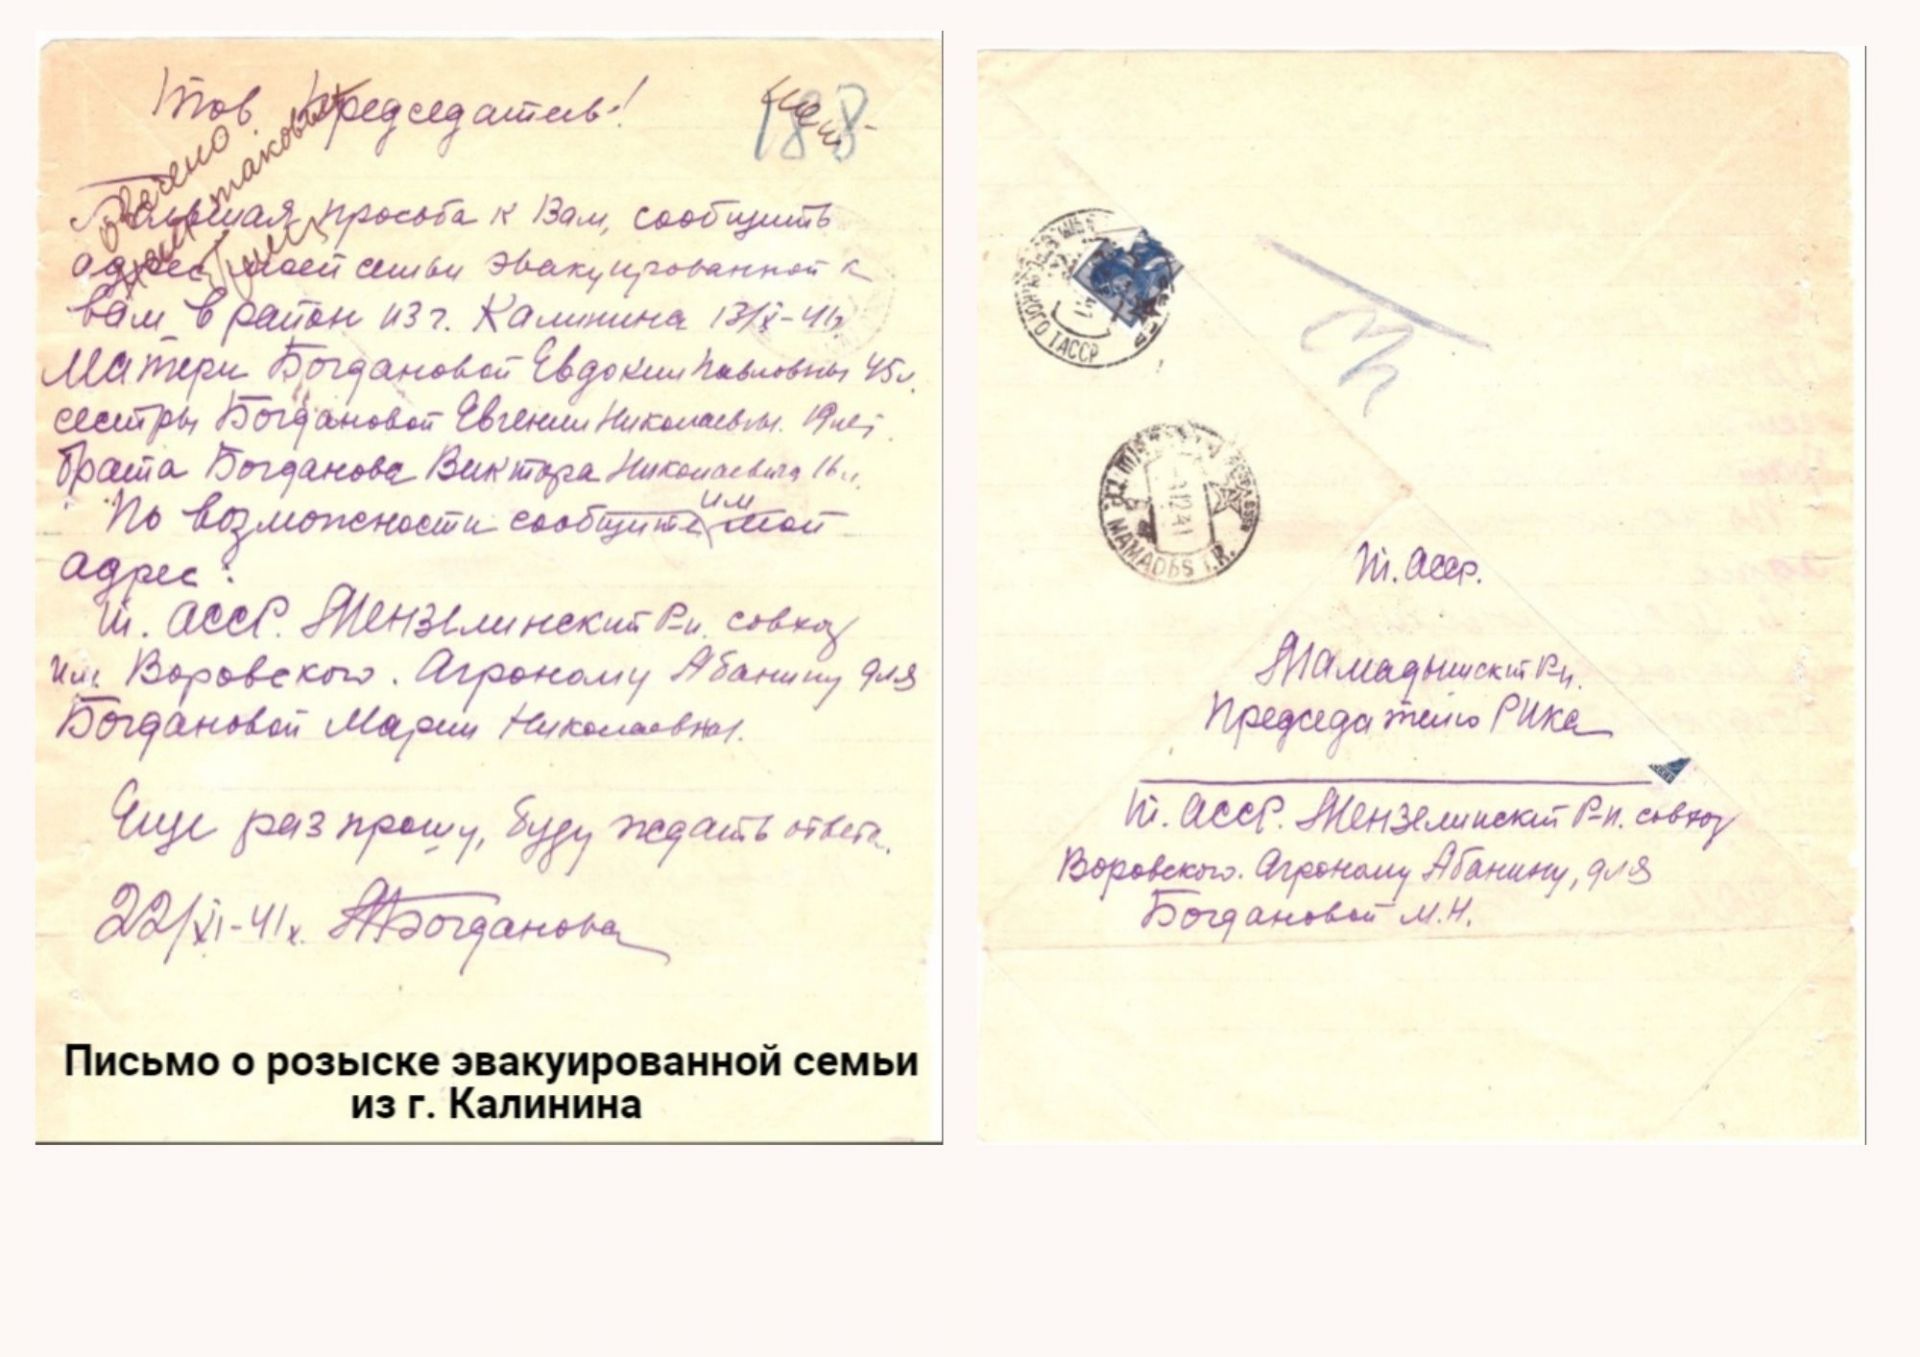 Тов Председатель!
188
отвечено
таковых
нет
Большая просьба к Вам, сообщить
адрес моей семьи эвакуированной к
вам в район из г. Калинина 13/X-41г
Матери Богдановой Евдокии Павловны 45л.
сестры Богдановой Евгении Николаевны. 19лет.
брата Богданова Виктора Николаевича 16л.
По возможности сообщите им мой
адрес:
Т. АССР. Мензелинский Р-н. совхоз
им. Воровского. Агроному Абанину для
Богдановой Марии Николаевны.
Еще раз прошу, буду ждать ответа.
22/XI-41г. МБогданова
Письмо о розыске эвакуированной семьи
из г. Калинина
ТАССР
12 41
MAMADЬŞ T.R.
Т. АССР.
Мамадышский Рн.
Председателю РИКа
Т. АССР. Мензелинский Р-н. совхоз
Воровского. Агроному Абанину, для
Богдановой М.Н.